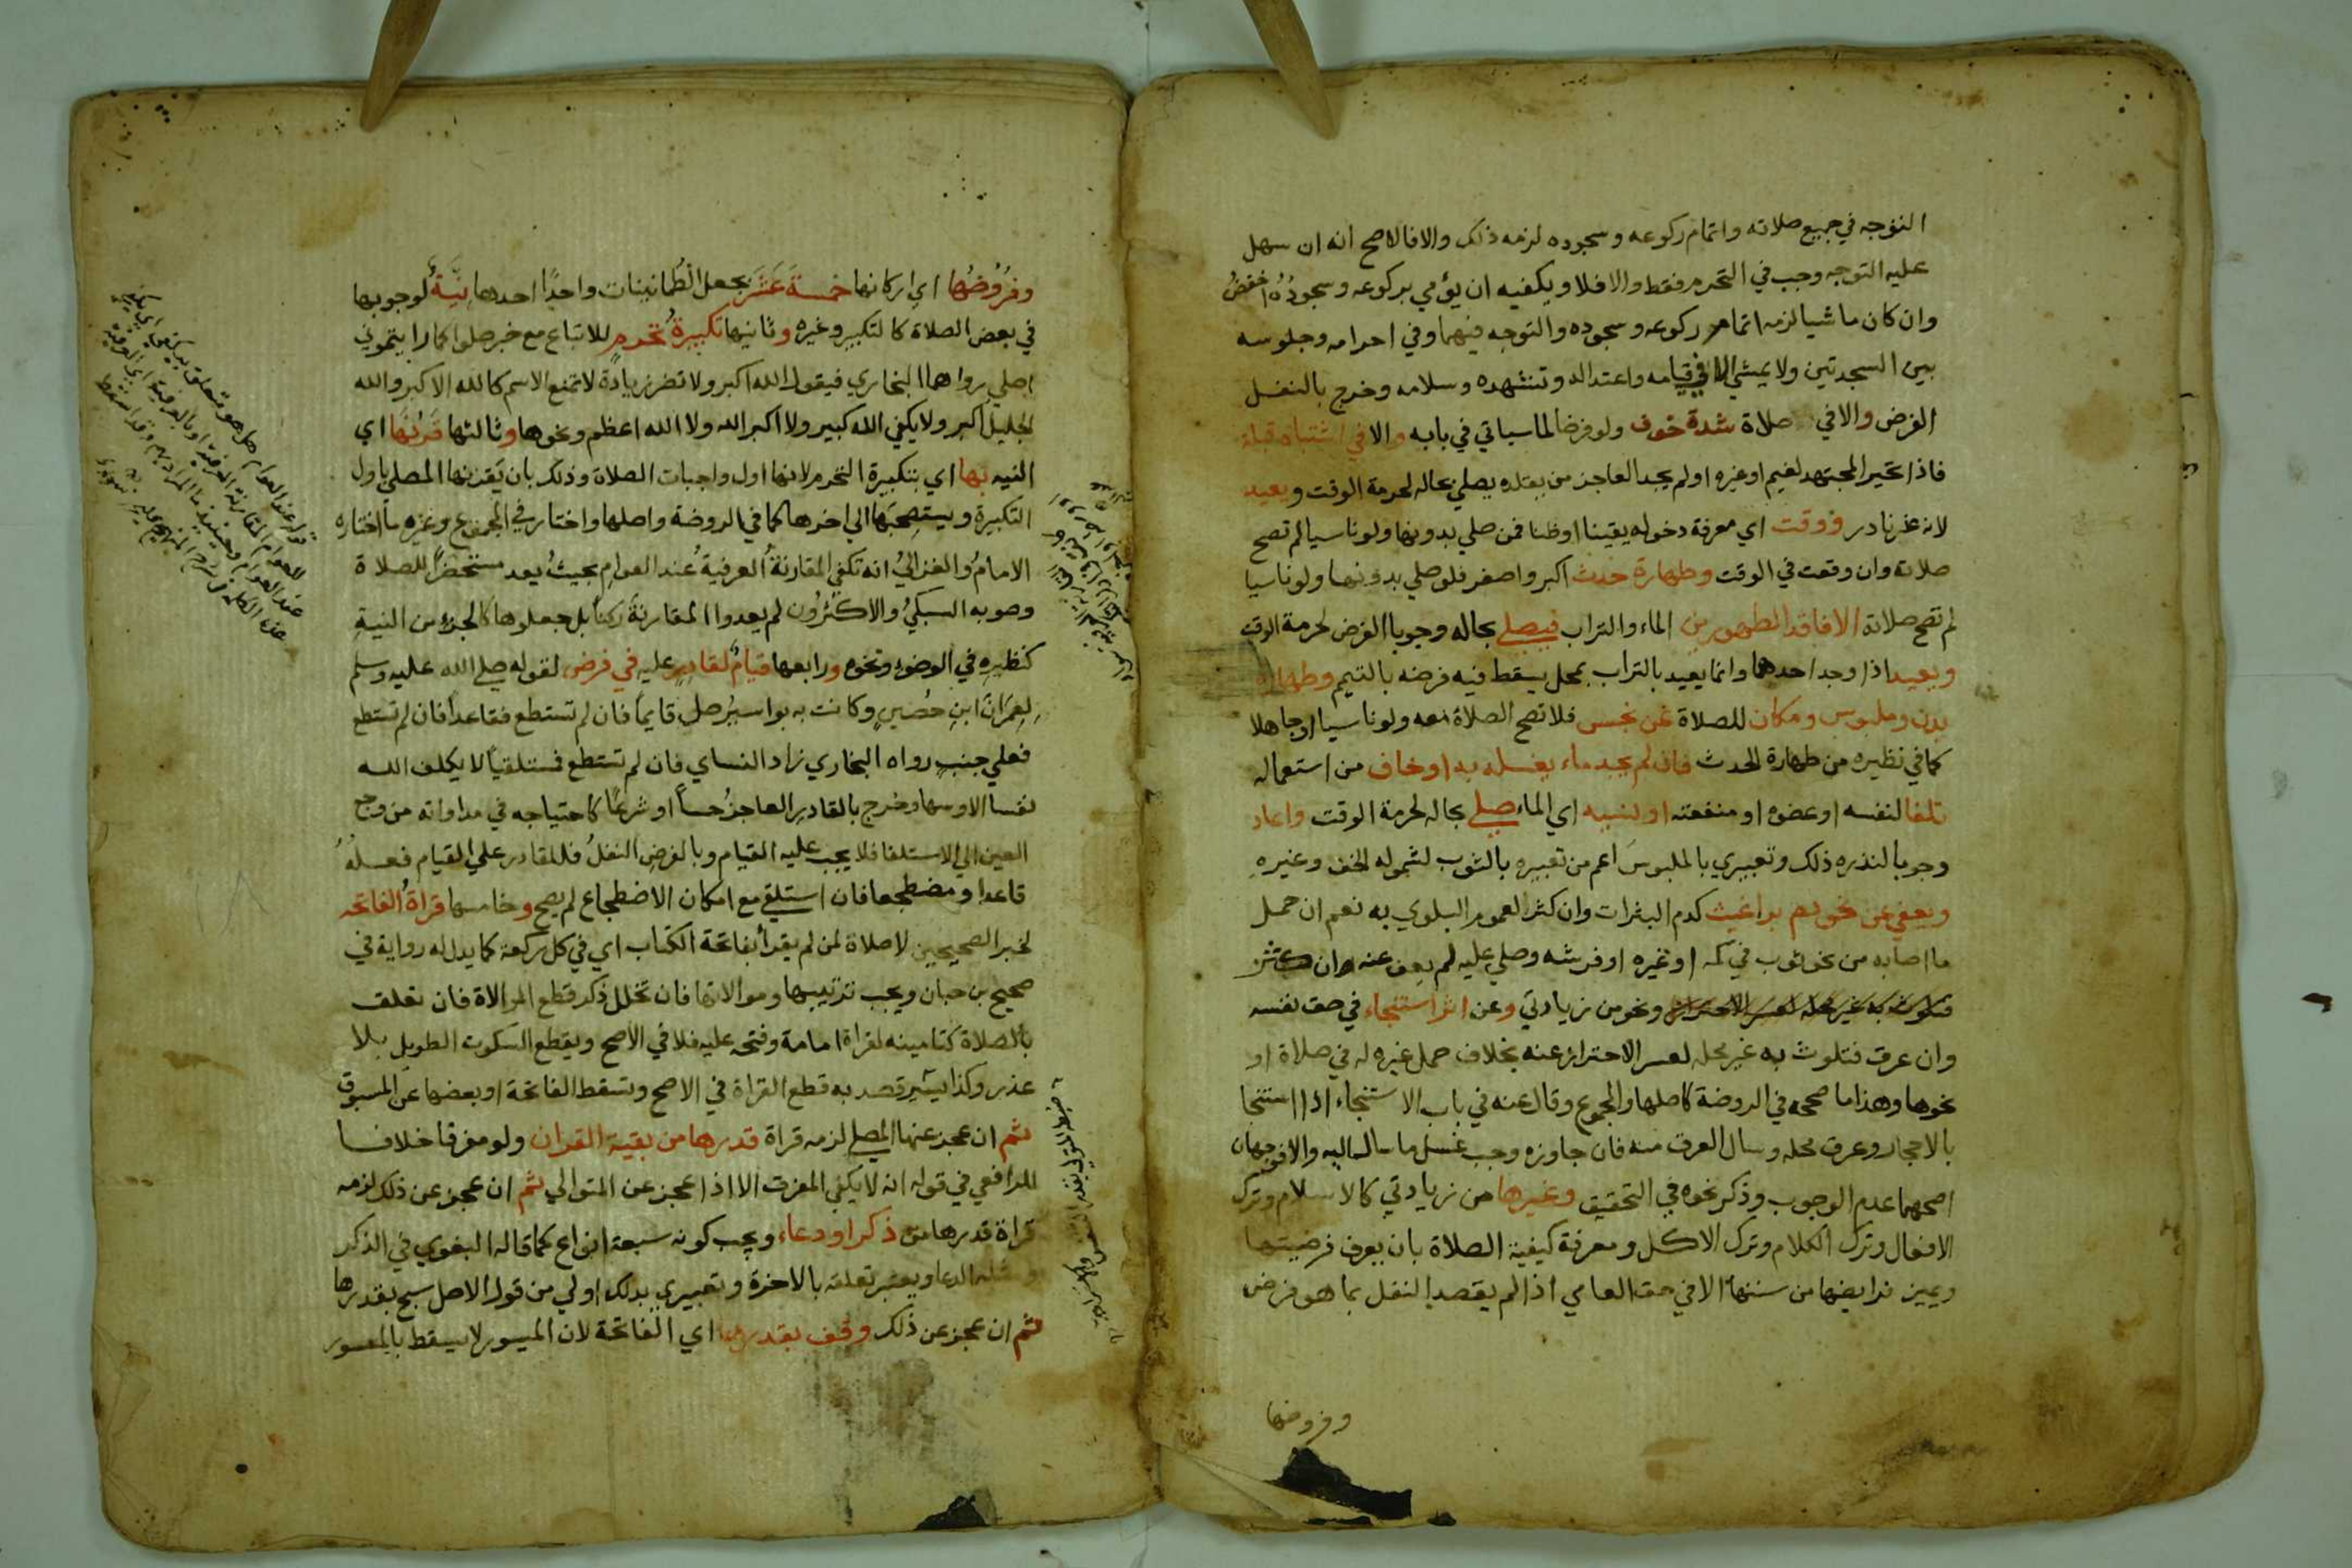 التوجه في جميع صلاته واتمام ركوعه وسجوده لزمه ذلك والا فالاصح انه ان سهل
عليه التوجه وجب في التحرم فقط والا فلا ويكفيه ان يؤمي بركوعه وسجوده اخفض
وان كان ماشيا لزمه اتمام ركوعه وسجوده والتوجه فيهما وفي احرامه وجلوسه
بين السجدتين ولا يمشي الا في قيامه واعتداله وتشهده وسلامه وخرج بالنفل
الفرض والا في صلاة شدة خوف ولو فرضا لما سياتي في بابه والا في اشتباه قبلة
فاذا تحير المجتهد لغيم او غيره او لم يجد العاجز من يقلده يصلي بحاله لحرمة الوقت ويعيد
لانه عذر نادر ووقت اي معرفة دخوله يقينا او ظنا فمن صلي بدونها ولو ناسيا لم تصح
صلاته وان وقعت في الوقت وطهارة حدث اكبر واصغر فلو صلي بدونها ولو ناسيا
لم تصح صلاته الا فاقد الطهورين الماء والتراب فيصلي بحاله وجوبا الفرض لحرمة الوقت
ويعيد اذا وجد احدهما وانما يعيد بالتراب بمحل يسقط فيه فرضه بالتيمم وطهارة
بدن وملبوس ومكان للصلاة عن نجس فلا تصح الصلاة معه ولو ناسيا او جاهلا
كما في نظيره من طهارة الحدث فان لم يجد ماء يغسله به او خاف من استعماله
تلفا لنفسه او عضوه او منفعته او لنسيه اي الماء صلي بحاله لحرمة الوقت واعاد
وجوبا لندره ذلك وتعبيري بالملبوس اعم من تعبيره بالثوب لشموله الخف وغيره
ويعفي عن نحو دم براغيث كدم البثرات وان كثر لعموم البلوي به نعم ان حمل
ما اصابه من نحو ثوب في كمه او غيره او فرشه وصلي عليه لم يعف عنه
ونحو من زيادتي وعن اثر استنجاء في حق نفسه
وان عرق فتلوث به غير محله لعسر الاحتراز عنه بخلاف حمل غيره له في صلاة او
نحوها وهذا ما صححه في الروضة كاصلها والمجموع وقال عنه في باب الاستنجاء اذا استنجا
بالاحجار وعرق محله وسال العرق منه فان جاوزه وجب غسل ما سال اليه والا فوجهان
اصحهما عدم الوجوب وذكر نحوه في التحقيق وغيرها من زيادتي كالاسلام وترك
الافعال وترك الكلام وترك الاكل ومعرفة كيفية الصلاة بان يعرف فرضيتها
ويميز فرايضها من سننها الا في حق العامي اذا لم يقصد النفل بما هو فرض
وفروضها
وفروضها اي اركانها خمسة عشر بجعل الطمانينات واحدا احدها نية لوجوبها
في بعض الصلاة كالتكبير وغيره وثانيها تكبيرة تحرم للاتباع مع خبر صلوا كما رايتموني
اصلي رواهما البخاري فيقول الله اكبر ولا تضر زيادة لا تمنع الاسم كالله الاكبر والله
الجليل اكبر ولا يكفي الله كبير ولا اكبر الله ولا الله اعظم ونحوها وثالثها قرنها اي
النيه بها اي بتكبيرة التحرم لانها اول واجبات الصلاة وذلك بان يقرنها المصلي باول
التكبيرة ويستصحبها الي اخرها كما في الروضة واصلها واختار في المجموع وغيره ما اختاره
الامام والغزالي انه تكفي المقارنة العرفية عند العوام بحيث يعد مستحضرا للصلاة
وصوبه السبكي والاكثرون لم يعدوا المقارنة ركنا بل جعلوها كالجزء من النية
كنظيره في الوضوء ونحوه ورابعها قيام لقادر عليه في فرض لقوله صلي الله عليه وسلم
لعمران ابن حصين وكانت به بواسير صل قايما فان لم تستطع فقاعدا فان لم تستطع
فعلي جنب رواه البخاري زاد النساي فان لم تستطع فمستلقيا لا يكلف الله
نفسا الا وسعها وخرج بالقادر العاجز حسا او شرعا كاحتياجه في مداواته من وجع
العين الي الاستلقا فلا يجب عليه القيام وبالفرض النفل فللقادر علي القيام فعله
قاعدا ومضطجعا فان استلقي مع امكان الاضطجاع لم يصح وخامسها قراة الفاتحة
لخبر الصحيحين لا صلاة لمن لم يقرا بفاتحة الكتاب اي في كل ركعة كما يدل له رواية في
صحيح بن حبان ويجب ترتيبها وموالاتها فان تخلل ذكر قطع الموالاة فان تعلق
بالصلاة كتامينه لقراة امامة وفتحه عليه فلا في الاصح ويقطع السكوت الطويل بلا
عذر وكذا يسير قصد به قطع القراة في الاصح وتسقط الفاتحة او بعضها عن المسبوق
ثم ان عجز عنها المصلي لزمه قراة قدرها من بقية القران ولو مفرقا خلافا
للرافعي في قوله انه لا يكفي المفرق الا اذا عجز عن المتوالي ثم ان عجز عن ذلك لزمه
قراة قدرها من ذكر او دعاء ويجب كونه سبعة انواع كما قاله البغوي في الذكر
ومثله الدعا ويعتبر تعلقه بالاخرة وتعبيري بذلك اولي من قول الاصل سبح بقدرها
ثم ان عجز عن ذلك وقف بقدرها اي الفاتحة لان الميسور لا يسقط بالمعسور